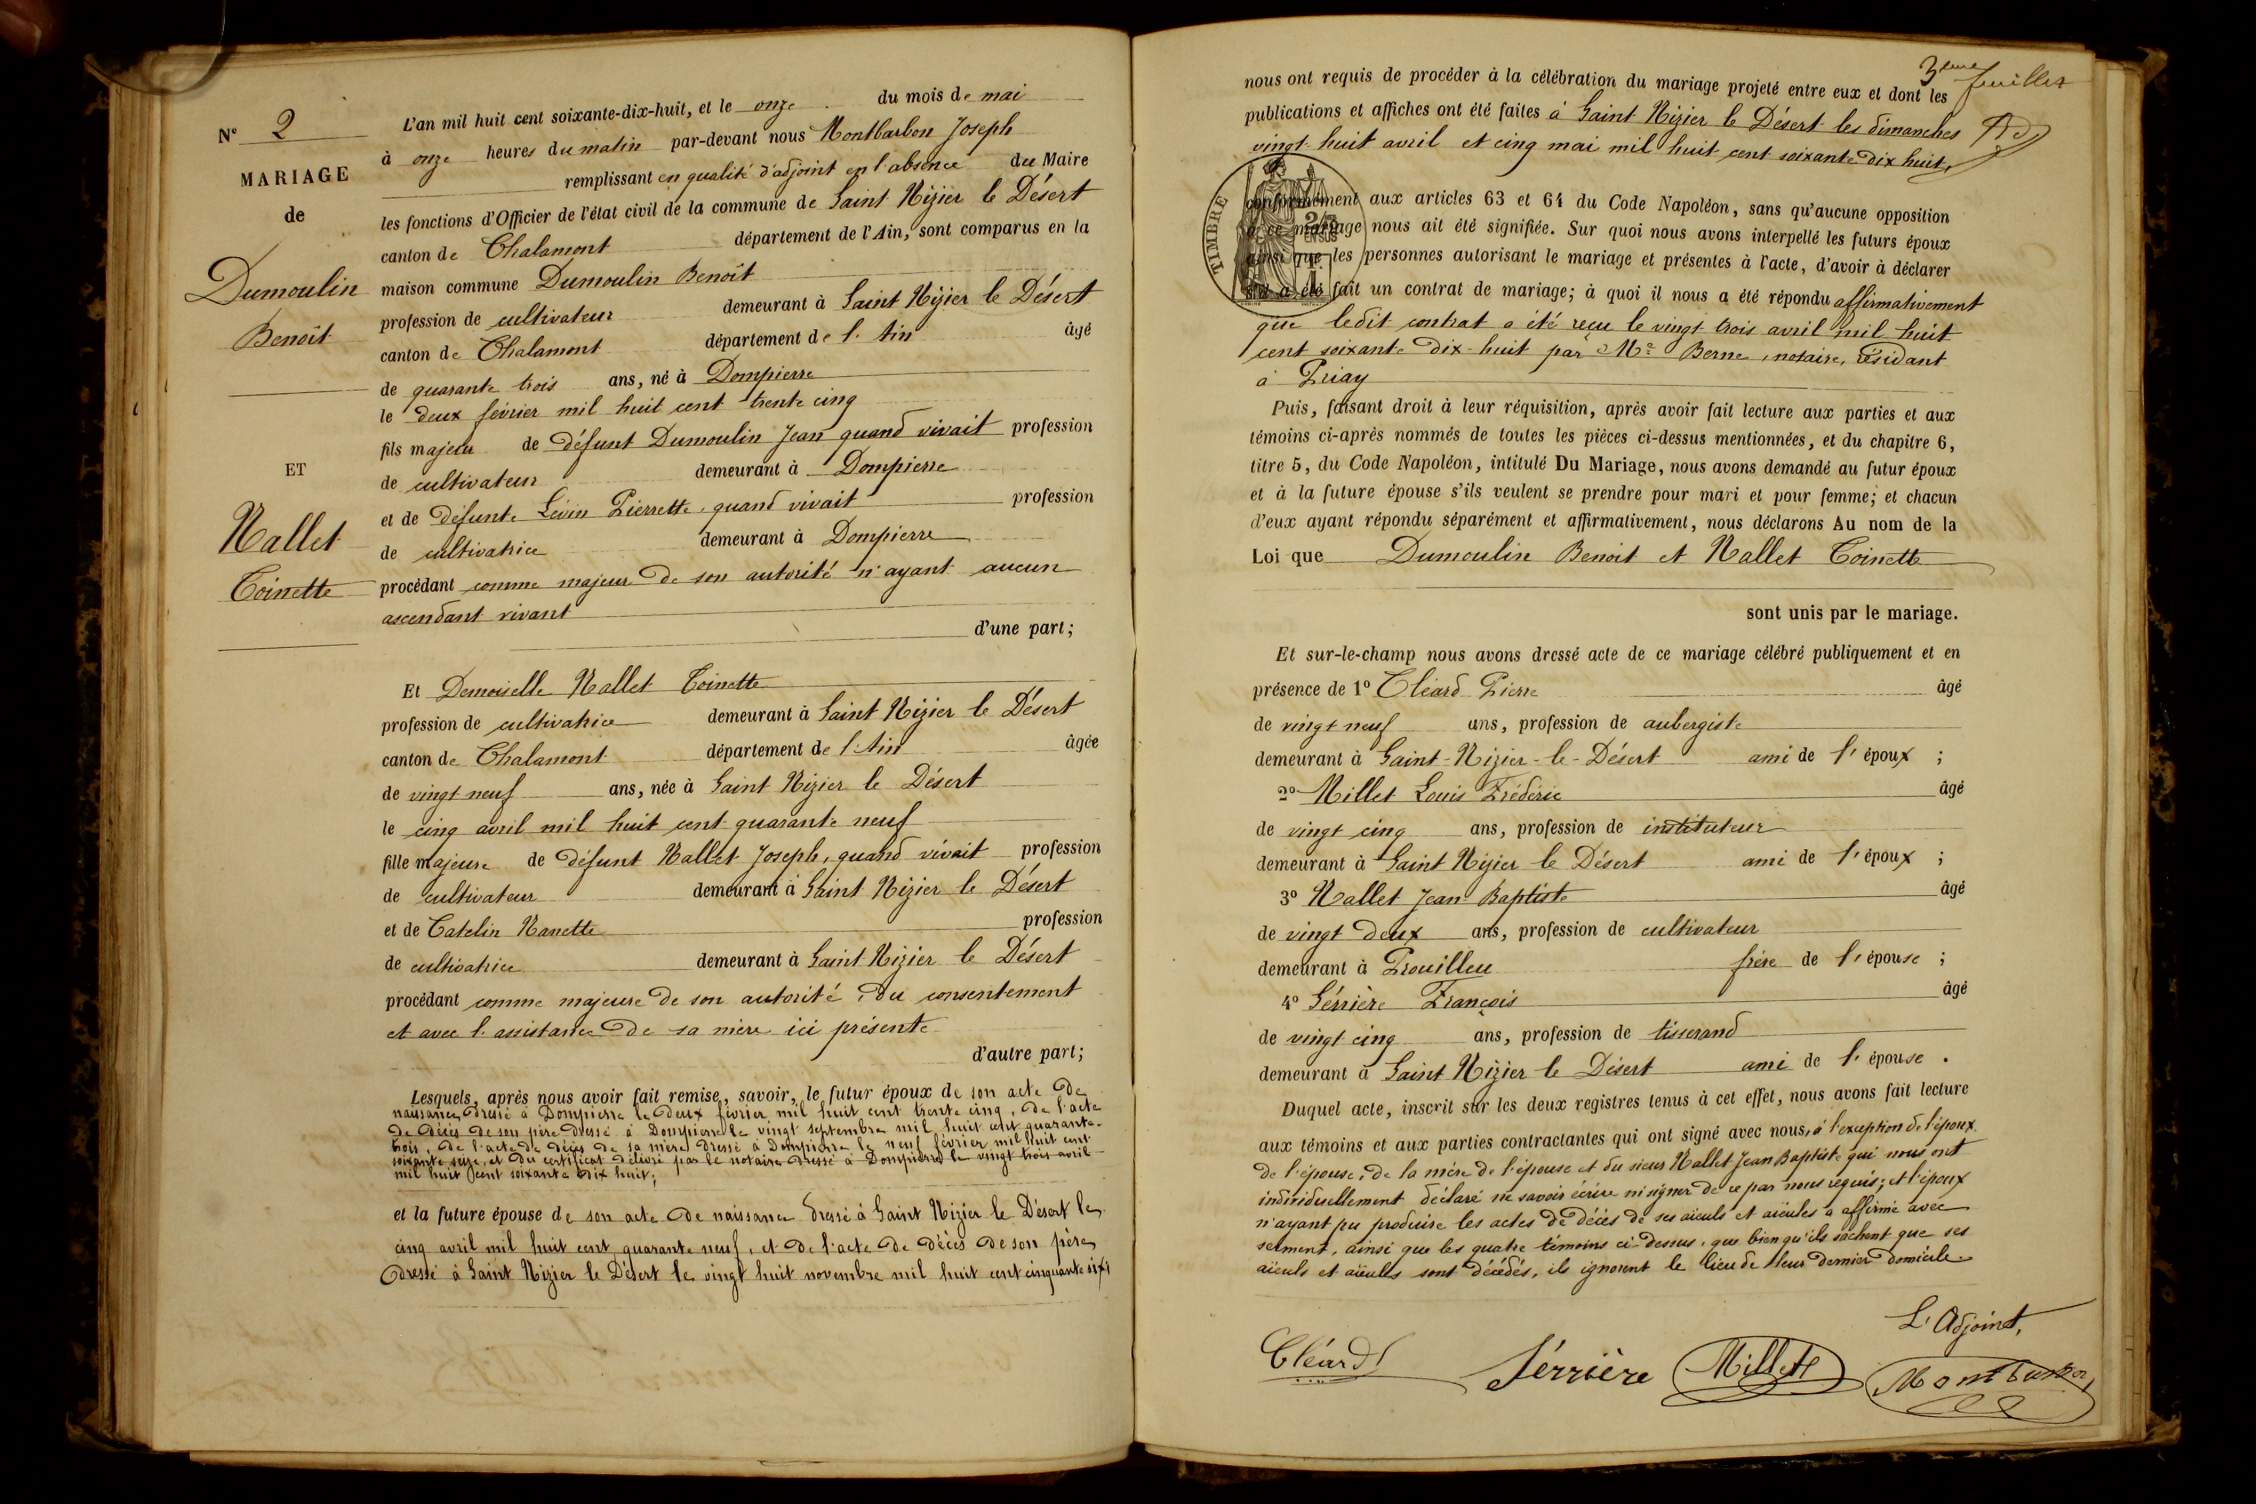 N° 2
MARIAGE
de
Dumoulin
Benoît
ET
Nallet
Toinette
L'an mil huit cent soixante-dix-huit, et le onze du mois de mai
à onze heures du matin par-devant nous Montbarbon Joseph
remplissant en qualité d'adjoint en l'absence du Maire
les fonctions d'Officier de l'état civil de la commune de Saint Nizier le Désert
canton de Chalamont département de l'Ain, sont comparus en la
maison commune Dumoulin Benoît
profession de cultivateur demeurant à Saint Nizier le Désert
canton de Chalamont département de l'Ain âgé
de quarante trois ans, né à Dompierre
le deux février mil huit cent trente cinq
fils majeur de défunt Dumoulin Jean quand vivait profession
de cultivateur demeurant à Dompierre
et de défunte Levin Pierrette, quand vivait profession
de cultivatrice demeurant à Dompierre
procédant comme majeur de son autorité n'ayant aucun
ascendant vivant
d'une part;
Et Demoiselle Nallet Toinette
profession de cultivatrice demeurant à Saint Nizier le Désert
canton de Chalamont département de l'Ain âgée
de vingt neuf ans, née à Saint Nizier le Désert
le cinq avril mil huit cent quarante neuf
fille majeure de défunt Nallet Joseph, quand vivait profession
de cultivateur demeurant à Saint Nizier le Désert
et de Catelin Nanette profession
de cultivatrice demeurant à Saint Nizier le Désert
procédant comme majeure de son autorité, du consentement
et avec l'assistance de sa mère ici présente
d'autre part;
Lesquels, après nous avoir fait remise, savoir, le futur époux de son acte de
naissance dressé à Dompierre le deux février mil huit cent trente cinq, de l'acte
de décès de son père dressé à Dompierre le vingt septembre mil huit cent quarante-
trois, de l'acte de décès de sa mère dressé à Dompierre le neuf février mil huit cent
soixante seize, et du certificat délivré par le notaire dressé à Dompierre le vingt trois avril
mil huit cent soixante dix huit;
et la future épouse de son acte de naissance dressé à Saint Nizier le Désert le
cinq avril mil huit cent quarante neuf, et de l'acte de décès de son père
dressé à Saint Nizier le Désert le vingt huit novembre mil huit cent cinquante six
3eme feuillet
nous ont requis de procéder à la célébration du mariage projeté entre eux et dont les
publications et affiches ont été faites à Saint Nizier le Désert les dimanches
vingt-huit avril et cinq mai mil huit cent soixante dix huit,
TIMBRE
2/10
EN SUS
conformément aux articles 63 et 64 du Code Napoléon, sans qu'aucune opposition
à ce mariage nous ait été signifiée. Sur quoi nous avons interpellé les futurs époux
ainsi que les personnes autorisant le mariage et présentes à l'acte, d'avoir à déclarer
s'il a été fait un contrat de mariage; à quoi il nous a été répondu affirmativement
que ledit contrat a été reçu le vingt trois avril mil huit
cent soixante dix-huit par Me Berne, notaire, résidant
à Priay
Puis, faisant droit à leur réquisition, après avoir fait lecture aux parties et aux
témoins ci-après nommés de toutes les pièces ci-dessus mentionnées, et du chapitre 6,
titre 5, du Code Napoléon, intitulé Du Mariage, nous avons demandé au futur époux
et à la future épouse s'ils veulent se prendre pour mari et pour femme; et chacun
d'eux ayant répondu séparément et affirmativement, nous déclarons Au nom de la
Loi que Dumoulin Benoit et Nallet Toinette
sont unis par le mariage.
Et sur-le-champ nous avons dressé acte de ce mariage célébré publiquement et en
présence de 1° Cléard Pierre âgé
de vingt neuf ans, profession de aubergiste
demeurant à Saint-Nizier-le-Désert ami de l'époux ;
2° Millet Louis Frédéric âgé
de vingt cinq ans, profession de instituteur
demeurant à Saint Nizier le Désert ami de l'époux ;
3° Nallet Jean Baptiste âgé
de vingt deux ans, profession de cultivateur
demeurant à Prouilleu frère de l'épouse ;
4° Sérrière François âgé
de vingt cinq ans, profession de tisserand
demeurant à Saint Nizier le Désert ami de l'épouse .
Duquel acte, inscrit sur les deux registres tenus à cet effet, nous avons fait lecture
aux témoins et aux parties contractantes qui ont signé avec nous, à l'exception de l'époux
de l'épouse, de la mère de l'épouse et du sieur Nallet Jean Baptiste qui nous ont
individuellement déclaré ne savoir écrire ni signer de ce par nous requis; et l'époux
n'ayant pu produire les actes de décès de ses aïeuls et aïeules a affirmé avec
serment, ainsi que les quatre témoins ci-dessus, que bien qu'ils sachent que ses
aïeuls et aïeules sont décédés, ils ignorent le lieu de leur dernier domicile
L'Adjoint,
Cléard Sérrière Millet Montbarbon